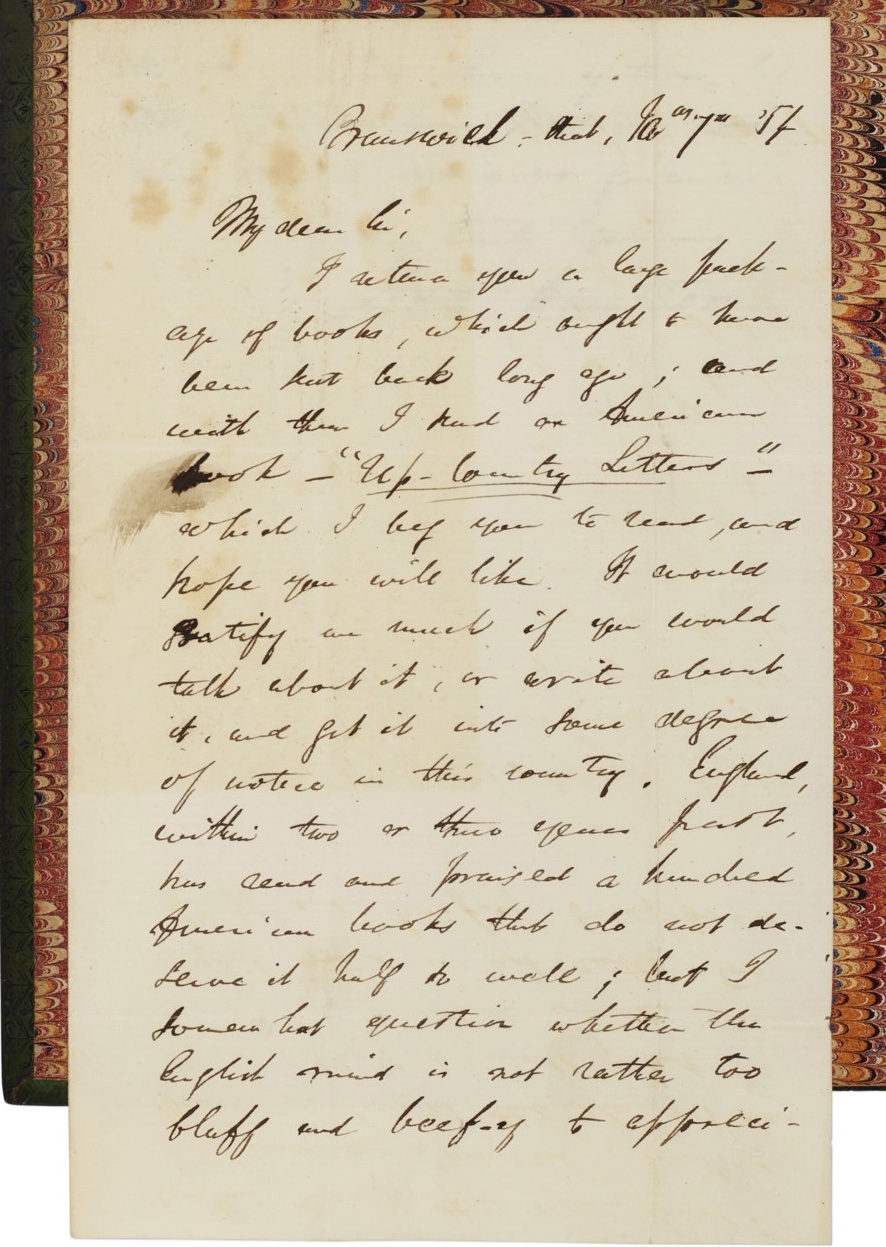 Brunswick-street, Jany '54
My dear Sir,
I return you a large pack-
age of books, which ought to have
been sent back long ago; and
with them I send an American
book — "Up-Country Letters" —
which I beg you to read, and
hope you will like. It would
gratify me much if you would
talk about it, or write about
it, and get it into some degree
of notice in this country. England,
within two or three years past,
has read and praised a hundred
American books that do not de-
serve it half so well; but I
somewhat question whether the
English mind is not rather too
bluff and beef-y to appreci-